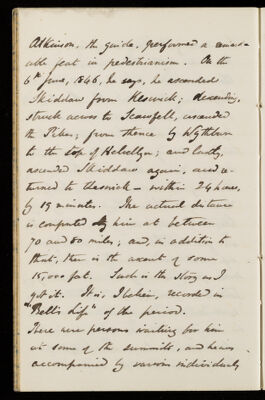 Atkinson, the guide, performed a remark-
able feat in pedestrianism. On the
6th June, 1846, he says, he ascended
Skiddaw from Keswick; descending,
struck across to Scawfell, ascended
the Pikes; from thence by Wythburn
to the top of Helvellyn; and lastly,
ascended Skiddaw again, and re-
turned to Keswick – within 24 hours,
by 15 minutes. The actual distance
is computed by him at between
70 and 80 miles; and, in addition to
that, there is the ascent of some
15,000 feet. Such is the story as I
got it. It is, I believe, recorded in
"Bell's Life" of the period.
There were persons waiting for him
at some of the summits, and he was
accompanied by various individuals